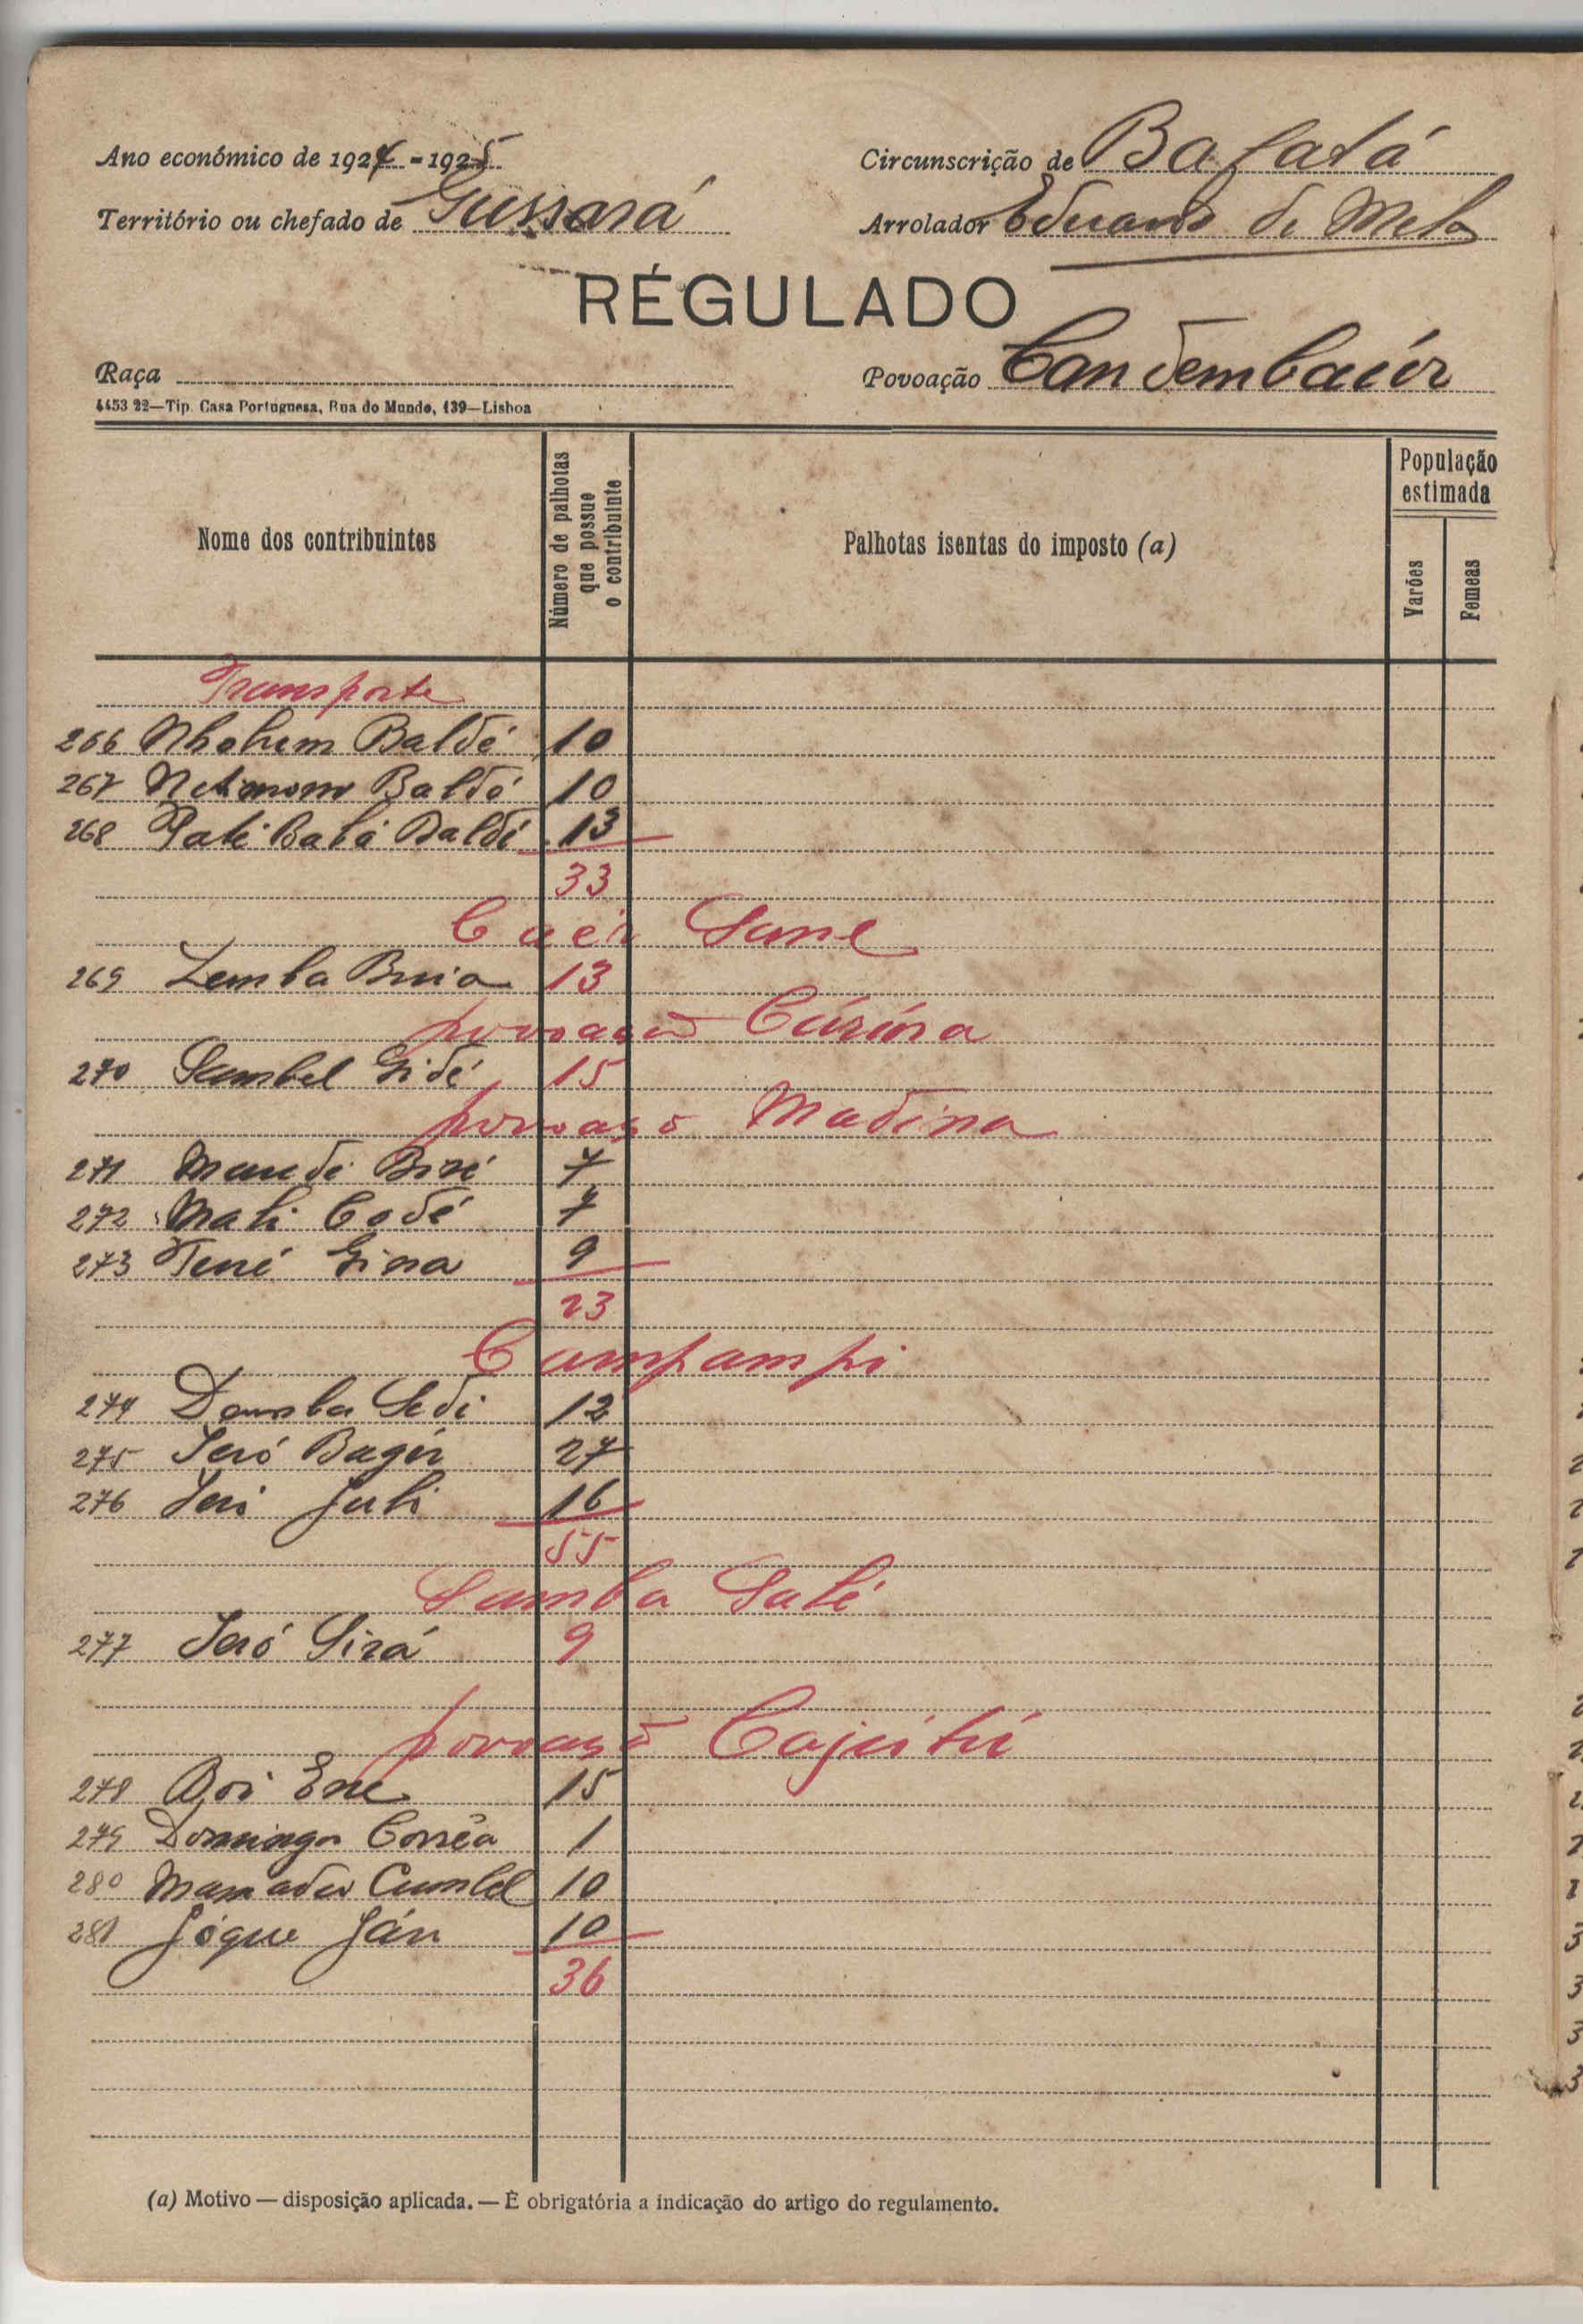 Ano económico de 1924-1925
Circunscrição de Bafatá
Território ou chefado de Gussará
Arrolador Eduardo de Melo
RÉGULADO
Raça
Povoação Candembaiér
4453 22—Tip. Casa Portuguesa, Rua do Mundo, 139—Lisboa
Nome dos contribuintes
Número de palhotas que possue o contribuinte
Palhotas isentas do imposto (a)
População estimada
Varões
Femeas
Transporte
266 Baldé 10
267 Baldé 10
268 Paté Balé Baldé 13
33
Sane
269 13
povoação
270 Sambel Gidé 15
povoação Madina
271 7
272 Mali Codé 7
273 9
23
Campampi
274 Demba Sedi 12
275 27
276 Juli 16
55
Samba Saté
277 Seró Sirá 9
povoação
278 15
279 Domingos Corrêa 1
280 Mamadu Cumbel 10
281 Jóque Ján 10
36
(a) Motivo — disposição aplicada. — É obrigatória a indicação do artigo do regulamento.